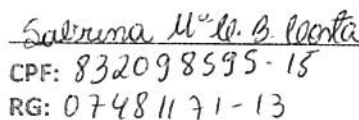 Sabrina Mª B. Costa
CPF: 832098595-15
RG: 07481171-13